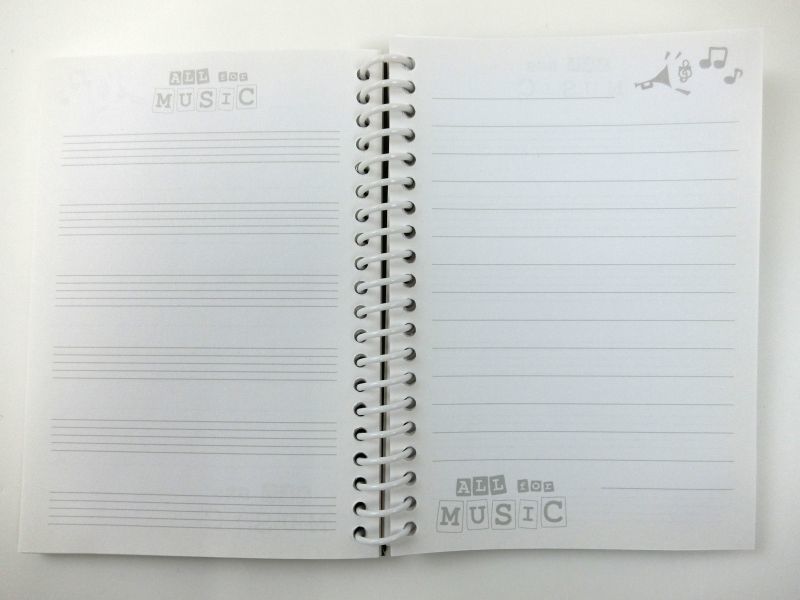 ALL for
MUSIC
ALL for
MUSIC